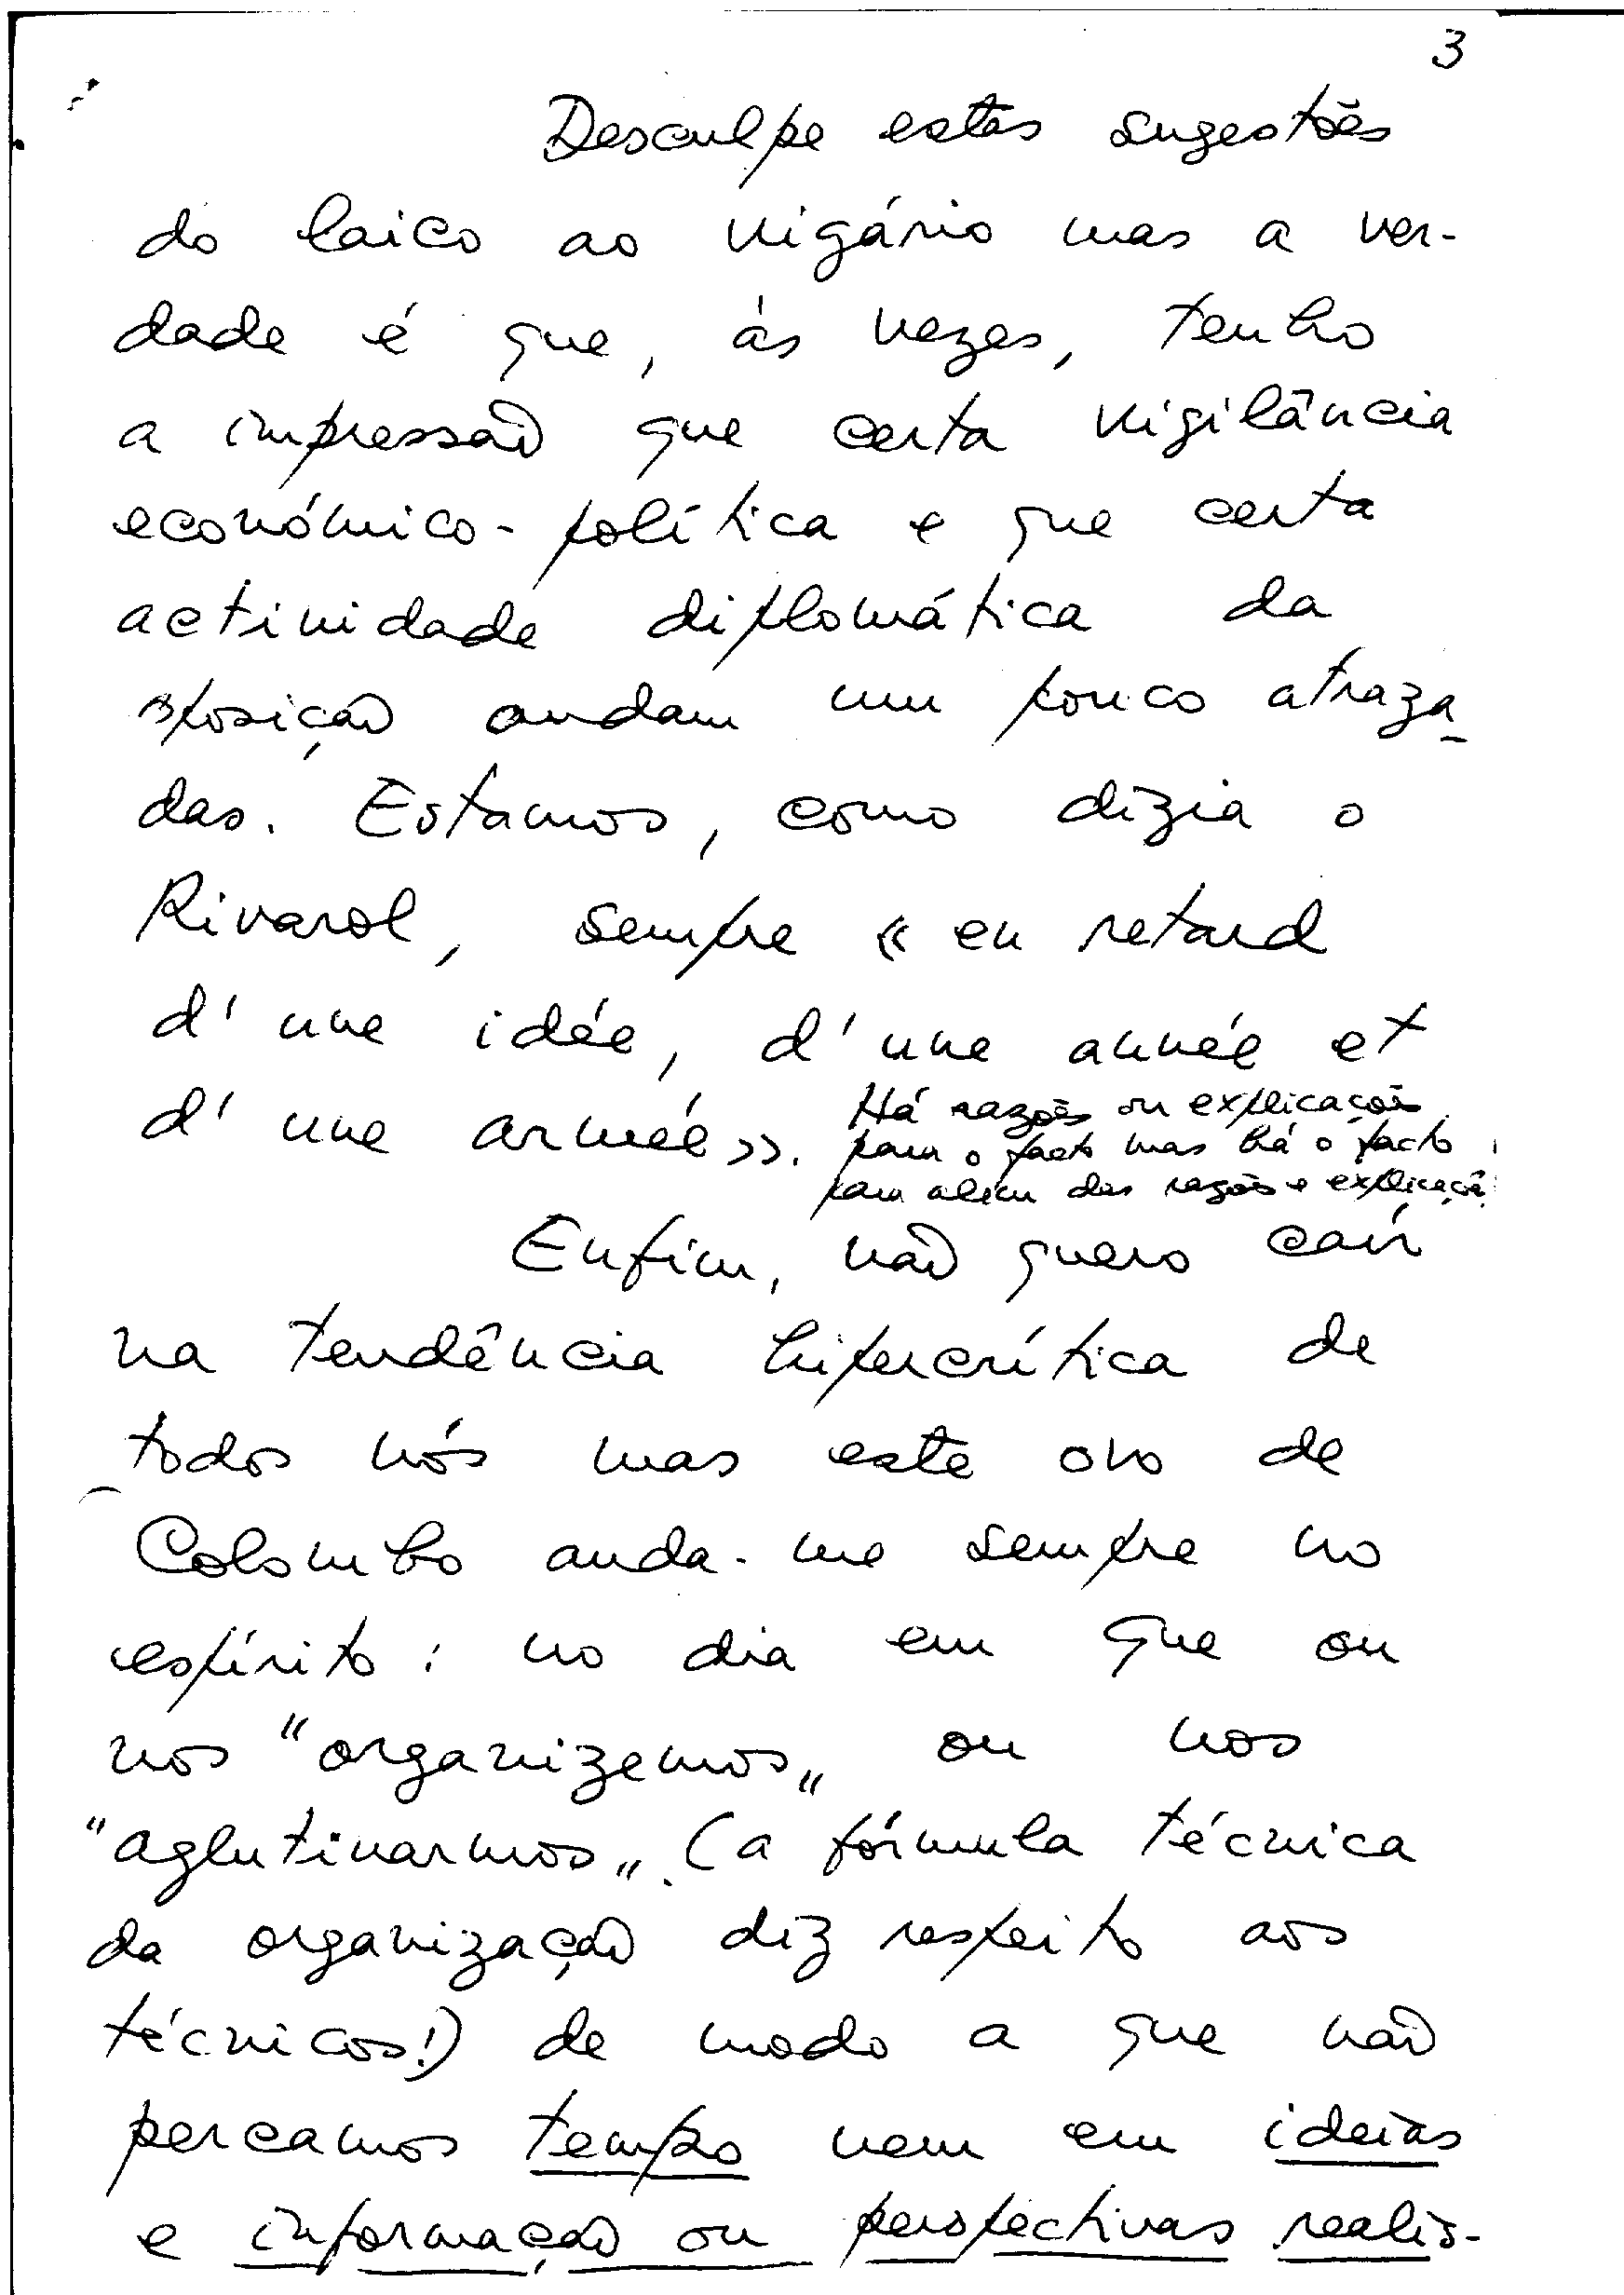 3
Desculpe estas sugestões
do laico ao vigário mas a ver-
dade é que, às vezes, tenho
a impressão que certa vigilância
económico-política e que certa
actividade diplomática da
oposição andam um pouco atraza-
das. Estamos, como dizia o
Rivarol, sempre « en retard
d'une idée, d'une année et
d'une armée ».
Há razões ou explicações
para o facto mas há o facto
para além das razões e explicaçõ
Enfim, não quero caír
na tendência hipercrítica de
todos nós mas este ovo de
Colombo anda-me sempre no
espírito: no dia em que ou
nos "organizemos" ou nos
"aglutinarmos" (a fórmula técnica
da organização diz respeito aos
técnicos!) de modo a que não
percamos tempo nem em ideias
e informação ou perspectivas realis-